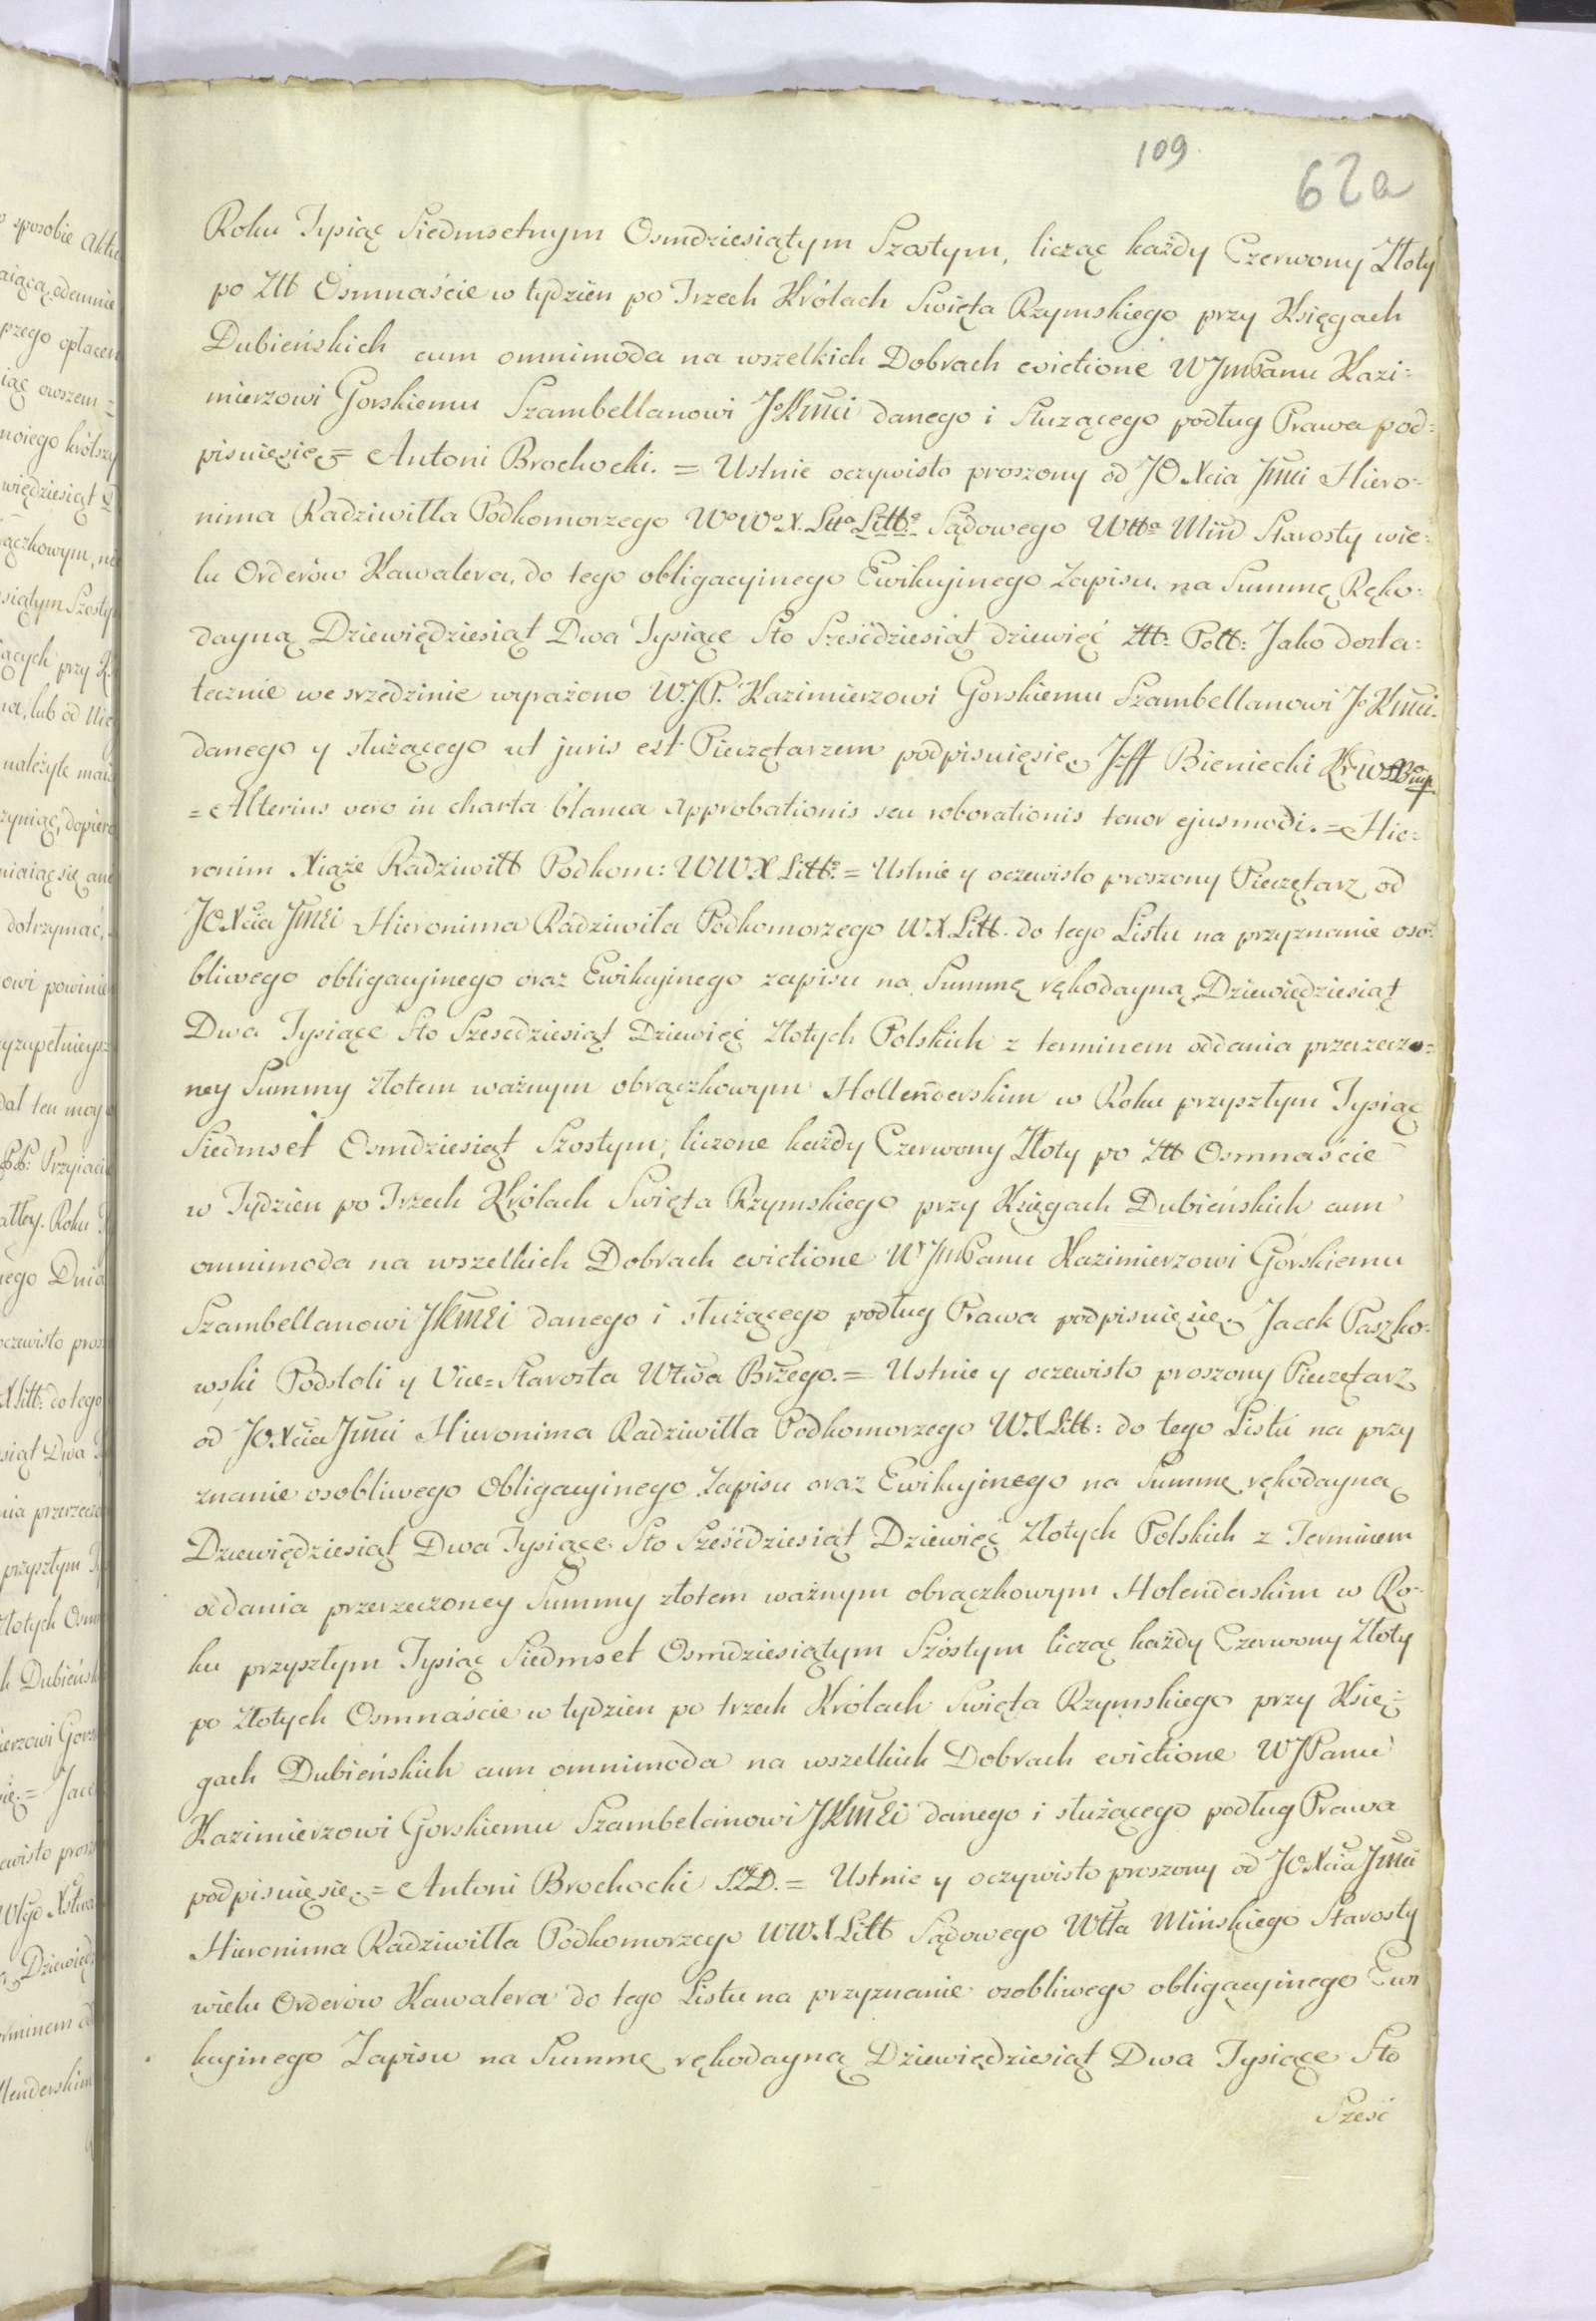 109.
62a
Roku Tysiąc Siedmsetnym Osmdziesiątym Szostym, licząc każdy Czerwony Złoty
po Złł Osmnaście w tydzien po Trzech Królach Święta Rzymskiego przy Księgach
Dubieńskich cum omnimoda na wszelkich Dobrach evictione WJmPanu Kazi:
mierzowi Gorskiemu Szambellanowi JKMci danego i Służącego podług Prawa pod:
pisuięsię = Antoni Brochocki. = Ustnie oczywisto proszony od JO Xcia Jmci Hiero:
nima Radziwiłła Podkomorzego Wo Wo X. Litto Sądowego Wtta Miń Starosty wie:
lu Orderów Kawalera, do tego obligacyinego Ewikcyinego Zapisu. na Summę Ręko:
dayną Dziewiędziesiąt Dwa Tysiące Sto Sześćdziesiąt dziewięć Złł: Poll: Jako dosta:
tecznie we srzedzinie wyrażono W.JP. Kazimierzowi Gorskiemu Szambellanowi JKMci.
danego y służącego ut juris est Pieczętarzem podpisuięsię Jff Bieniecki
= Alterius vero in charta blanca Approbationis seu roborationis tenor ejusmodi. = Hie:
ronim Xiąże Radziwiłł Podkom: WWX Litt: = Ustnie y oczewisto proszony Pieczętarz od
JOXcia Jmci Hieronima Radziwiła Podkomorzego WXLitt. do tego Listu na przyznanie oso:
bliwego obligacyinego oraz Ewikcyinego zapisu na Summę rękodayną Dziewiędziesiąt
Dwa Tysiące Sto Szescdziesiąt Dziewięć Złotych Polskich z terminem oddania przerzeczo:
ney Summy złotem ważnym obrączkowym Hollenderskim w Roku przyszłym Tysiąc
Siedmset Osmdziesiąt Szostym, liczone każdy Czerwony Złoty po Złł Osmnaście
w Tydzien po Trzech Królach Swięta Rzymskiego przy Księgach Dubieńskich cum
omnimoda na wszelkich Dobrach evictione WJmPanu Kazimierzowi Górskiemu
Szambellanowi JKMci danego i służącego podług Prawa podpisuięsię. Jacek Paszko:
wski Podstoli y Vice=Starosta Wtwa Brzego. = Ustnie y oczewisto proszony Pieczętarz
od JOXcia Jmci Hieronima Radziwiłła Podkomorzego W.XLitt: do tego Listu na przy
znanie osobliwego Obligacyinego Zapisu oraz Ewikcyinego na Summę rękodayną
Dziewiędziesiąt Dwa Tysiące Sto Sześćdziesiąt Dziewięć Złotych Polskich z Terminem
oddania przerzeczoney Summy złotem ważnym obrączkowym Holenderskim w Ro:
ku przyszłym Tysiąc Siedmset Osmdziesiątym Szóstym licząc każdy Czerwony Złoty
po Złotych Osmnaście w tydzien po trzech Królach Swięta Rzymskiego przy Księ:
gach Dubieńskich cum omnimoda na wszelkich Dobrach evictione WJPanu
Kazimierzowi Gorskiemu Szambelanowi JKMci danego i służącego podług Prawa
podpisuięsię. = Antoni Brochocki SZD. = Ustnie y oczywisto proszony od JOXcia Jmci
Hieronima Radziwiłła Podkomorzego WWXLitt Sądowego Wtta Mińskiego Starosty
wielu Orderów Kawalera do tego Listu na przyznanie osobliwego obligacyinego Ewi
kcyinego Zapisu na Summę rękodayną Dziewiędziesiąt Dwa Tysiące Sto
Sześć